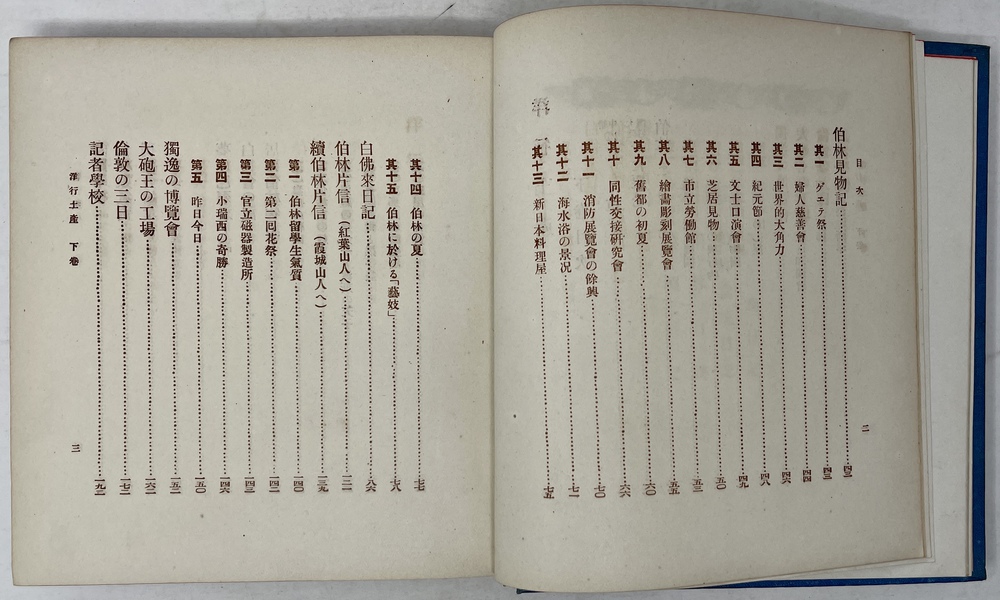 目次
伯林見物記……四三
其一 ゲエテ祭……四三
其二 婦人慈善會……四四
其三 世界的大角力……四六
其四 紀元節……四八
其五 文士口演會……四九
其六 芝居見物……五〇
其七 市立勞働館……五三
其八 繪畫彫刻展覽會……五五
其九 舊都の初夏……六〇
其十 同性交接硏究會……六六
其十一 消防展覽會の餘興……七〇
其十二 海水浴の景况……七一
其十三 新日本料理屋……七五
二
其十四 伯林の夏……七七
其十五 伯林に於ける「藝妓」……七八
白佛來日記……八六
伯林片信(紅葉山人へ)……一二一
續伯林片信(霞城山人へ)……一三九
第一 伯林留學生氣質……一四〇
第二 第二回花祭……一四一
第三 官立磁器製造所……一四三
第四 小瑞西の奇勝……一四六
第五 昨日今日……一五〇
獨逸の博覽會……一五一
大砲王の工場……一六一
倫敦の三日……一七一
記者學校……一九一
洋行土産 下卷
三